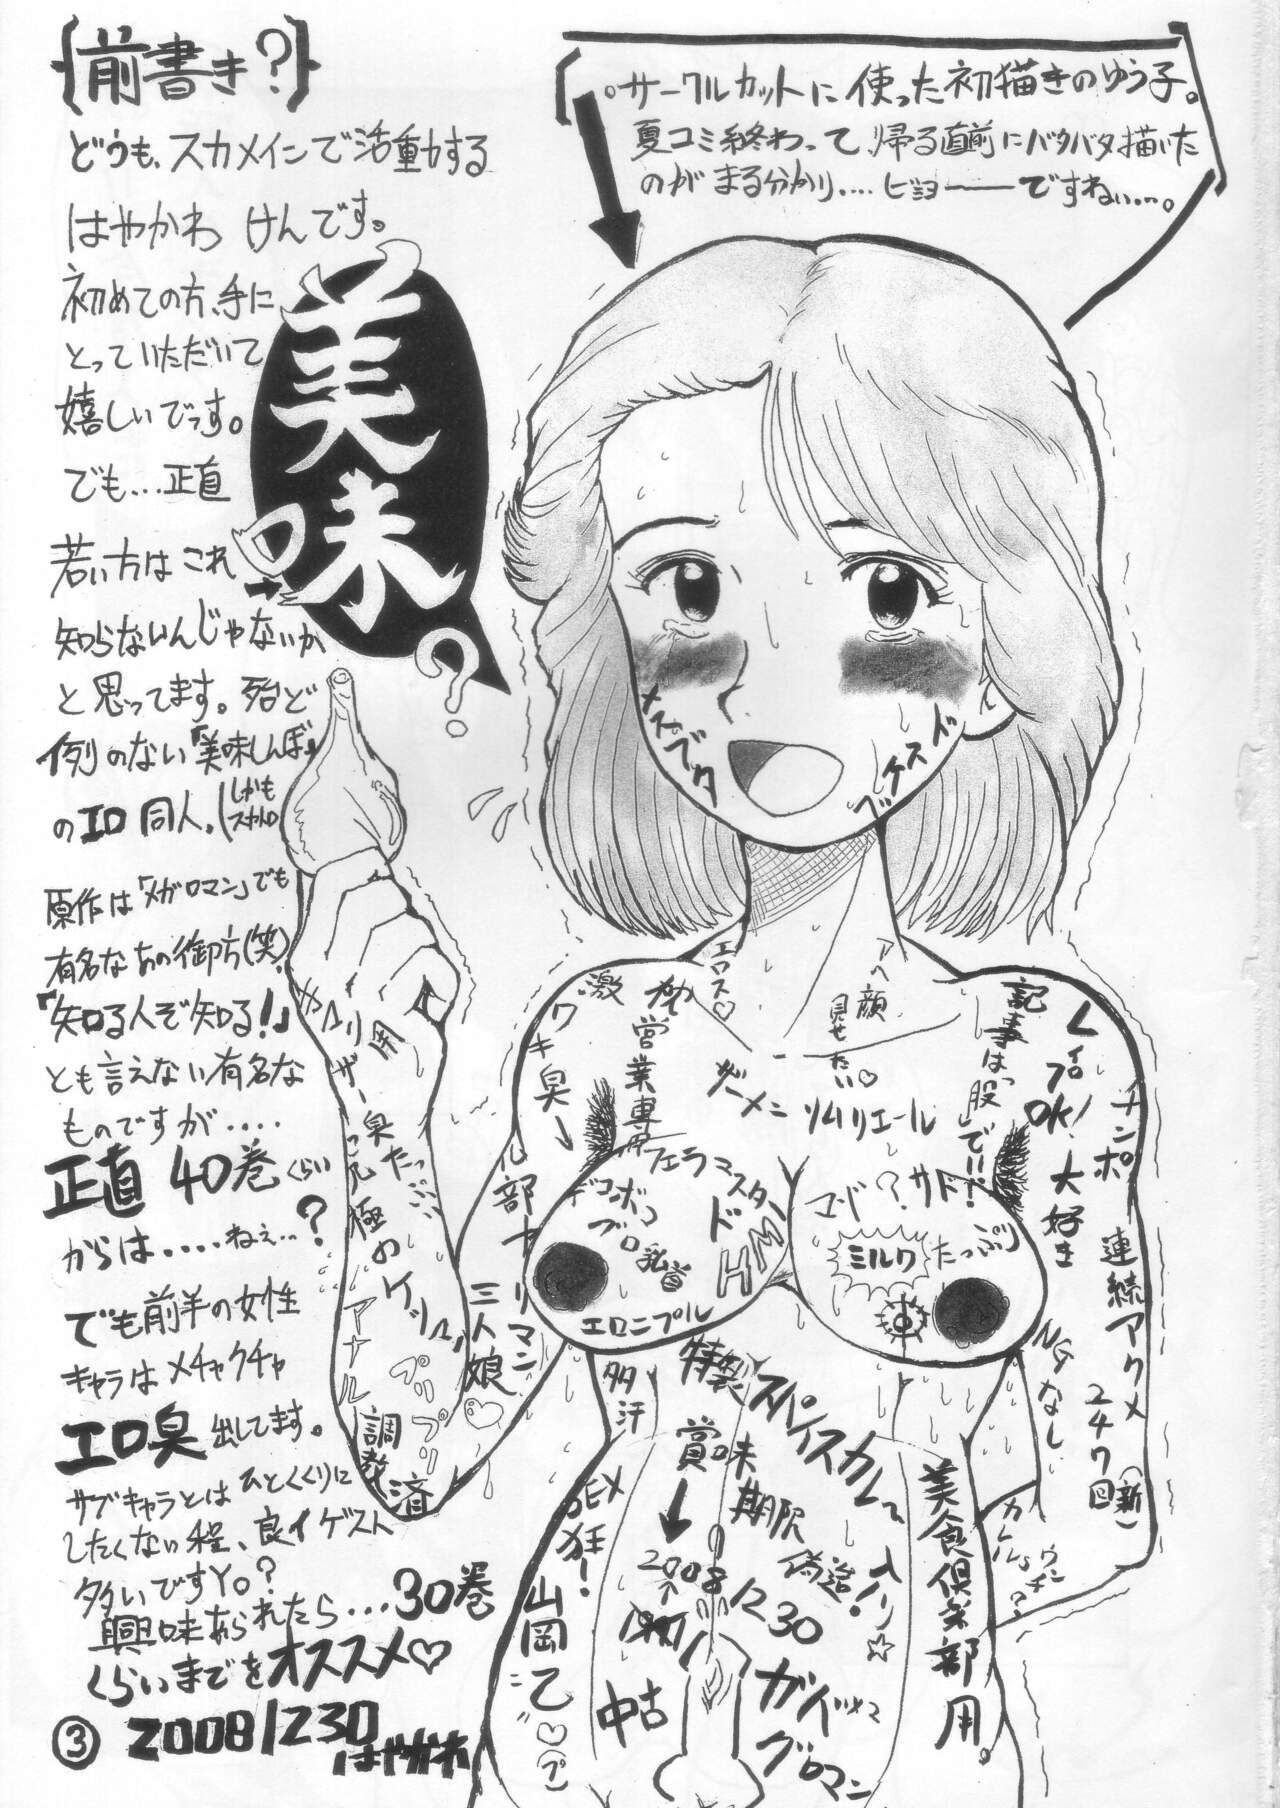 {前書き?}
どうも、スカメインで活動する
はやかわ けんです。
初めての方、手に
とっていただいて
嬉しいでっす。
でも…正直
若い方はこれ
知らないんじゃないか
と思ってます。殆ど
例のない『美味しんぼ』
のエロ同人。(しかも
スカトロ
原作は「メガロマン」でも
有名なあの御方(笑)
『知る人ぞ知る!』
とも言えない有名な
ものですが‥‥
正直 40巻くらい
からは‥‥ねぇ…?
でも前半の女性
キャラはメチャクチャ
エロ臭出してます。
サブキャラとはひとくくりに
したくない程、良イゲスト
多いですYo?
興味あられたら…30巻
くらいまでをオススメ♡
③ 20081230
はやかわ
。サークルカットに使った初描きのゆう子。
夏コミ終わって、帰る直前にバタバタ描いた
のがまる分かり‥‥ビミョーーですねぃ…。
美味?
メスブタ
ドスケベ
エロス♡
アヘ顔
見せたい♡
激
ワキ臭→
営業専用
ザーメン
ソムリエール
記事は、「股」でいく!
レイプOK!
大好き
チンポ
連続アクメ
247回
(新)
NGなし
フェラマスター
デコボコ
ブロ乳首
エロニプル
ドM
ミルク
たっぷり
三人娘♡
アナル
調教済
プリプリ
多汗
SEX狂!
山岡乙♡
特製スパイスカレー
入り☆
賞味期限
偽造!
↓
20081230
中古
グロマン
美食倶楽部用。